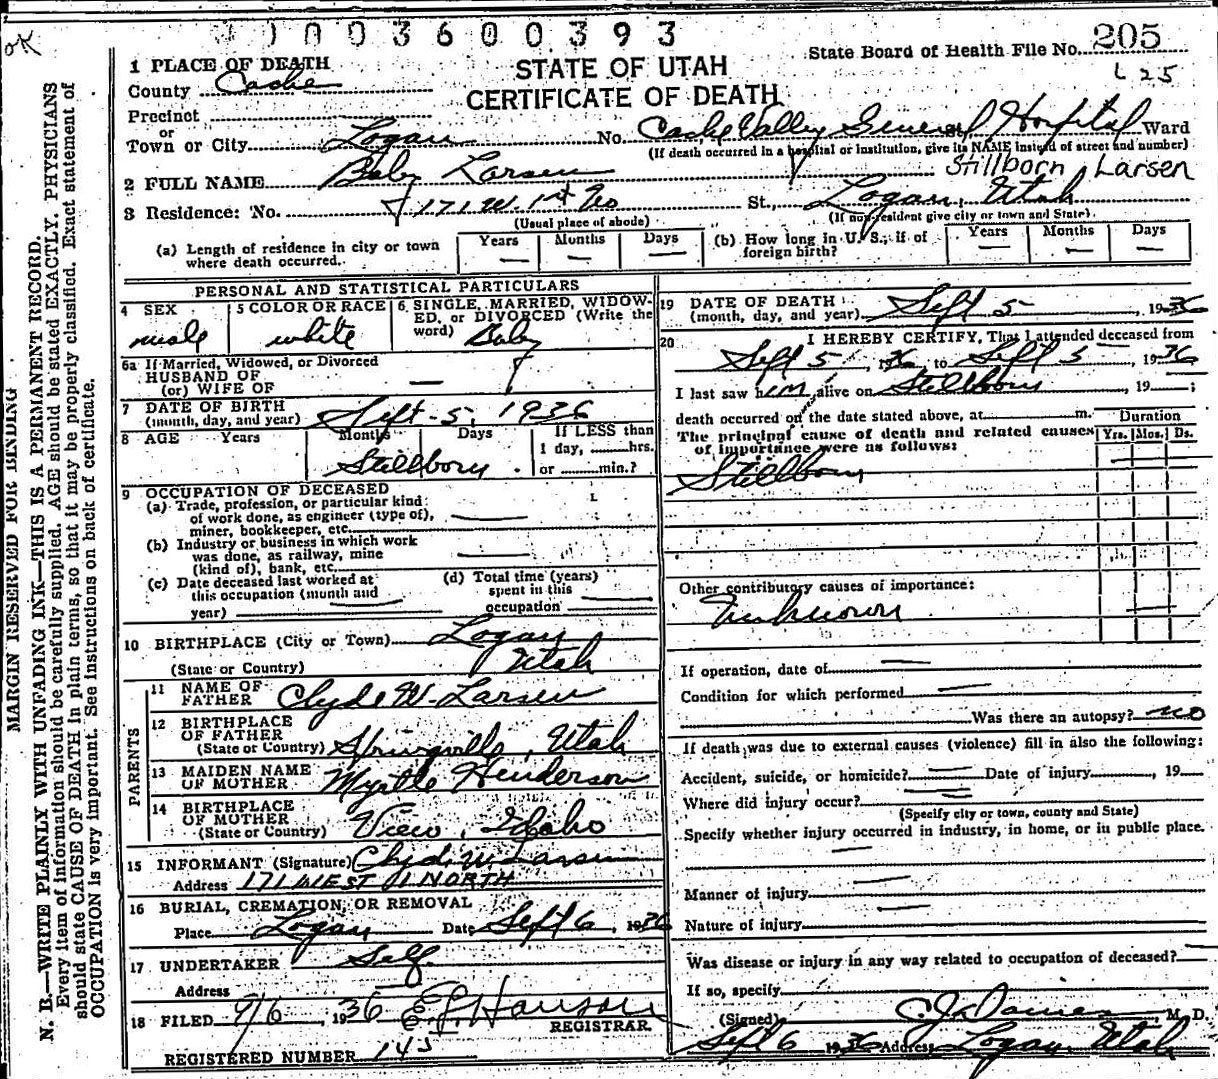 OK
0 0 0 3 6 0 0 3 9 3
State Board of Health File No. 205
L 25
STATE OF UTAH
CERTIFICATE OF DEATH
1 PLACE OF DEATH
County Cache
Precinct
or
Town or City Logan No. Cache Valley General Hospital Ward
(If death occurred in a hospital or institution, give its NAME instead of street and number)
2 FULL NAME Baby Larsen Stillborn Larsen
3 Residence: No. 171 W. 1st No St., Logan, Utah
(Usual place of abode) (If non-resident give city or town and State)
(a) Length of residence in city or town where death occurred. Years — Months — Days — (b) How long in U. S., if of foreign birth? Years — Months — Days —
PERSONAL AND STATISTICAL PARTICULARS
4 SEX male
5 COLOR OR RACE white
6 SINGLE, MARRIED, WIDOWED, or DIVORCED (Write the word) Baby
6a If Married, Widowed, or Divorced
HUSBAND OF
(or) WIFE OF —
7 DATE OF BIRTH
(month, day, and year) Sept - 5, 1936
8 AGE Years Months Days If LESS than
1 day, hrs.
or min.?
Stillborn
9 OCCUPATION OF DECEASED
(a) Trade, profession, or particular kind
of work done, as engineer (type of),
miner, bookkeeper, etc. —
(b) Industry or business in which work
was done, as railway, mine
(kind of), bank, etc. —
(c) Date deceased last worked at
this occupation (month and
year) —
(d) Total time (years)
spent in this
occupation —
10 BIRTHPLACE (City or Town) Logan
(State or Country) Utah
PARENTS
11 NAME OF
FATHER Clyde W. Larsen
12 BIRTHPLACE
OF FATHER
(State or Country) Springville, Utah
13 MAIDEN NAME
OF MOTHER Myrtle Henderson
14 BIRTHPLACE
OF MOTHER
(State or Country) View, Idaho
15 INFORMANT (Signature) Clyde W. Larsen
Address 171 WEST 1 NORTH
16 BURIAL, CREMATION, OR REMOVAL
Place Logan Date Sept 6, 1936
17 UNDERTAKER Self
Address
18 FILED 9/6, 1936 E. L. Hanson
REGISTRAR.
REGISTERED NUMBER 145
19 DATE OF DEATH
(month, day, and year) Sept 5, 1936
20 I HEREBY CERTIFY, That I attended deceased from
Sept 5, 1936, to Sept 5, 1936
I last saw him alive on Stillborn, 19 ;
death occurred on the date stated above, at m.
The principal cause of death and related causes
of importance were as follows:
Duration
Yrs. Mos. Ds.
Stillborn
Other contributory causes of importance:
Unknown
If operation, date of —
Condition for which performed —
Was there an autopsy? no
If death was due to external causes (violence) fill in also the following:
Accident, suicide, or homicide? — Date of injury , 19
Where did injury occur? —
(Specify city or town, county and State)
Specify whether injury occurred in industry, in home, or in public place.
—
Manner of injury —
Nature of injury —
Was disease or injury in any way related to occupation of deceased? —
If so, specify
(Signed) , M. D.
Sept 6 1936 Address Logan, Utah
MARGIN RESERVED FOR BINDING
N. B.—WRITE PLAINLY WITH UNFADING INK—THIS IS A PERMANENT RECORD.
Every item of information should be carefully supplied. AGE should be stated EXACTLY. PHYSICIANS
should state CAUSE OF DEATH in plain terms, so that it may be properly classified. Exact statement of
OCCUPATION is very important. See instructions on back of certificate.